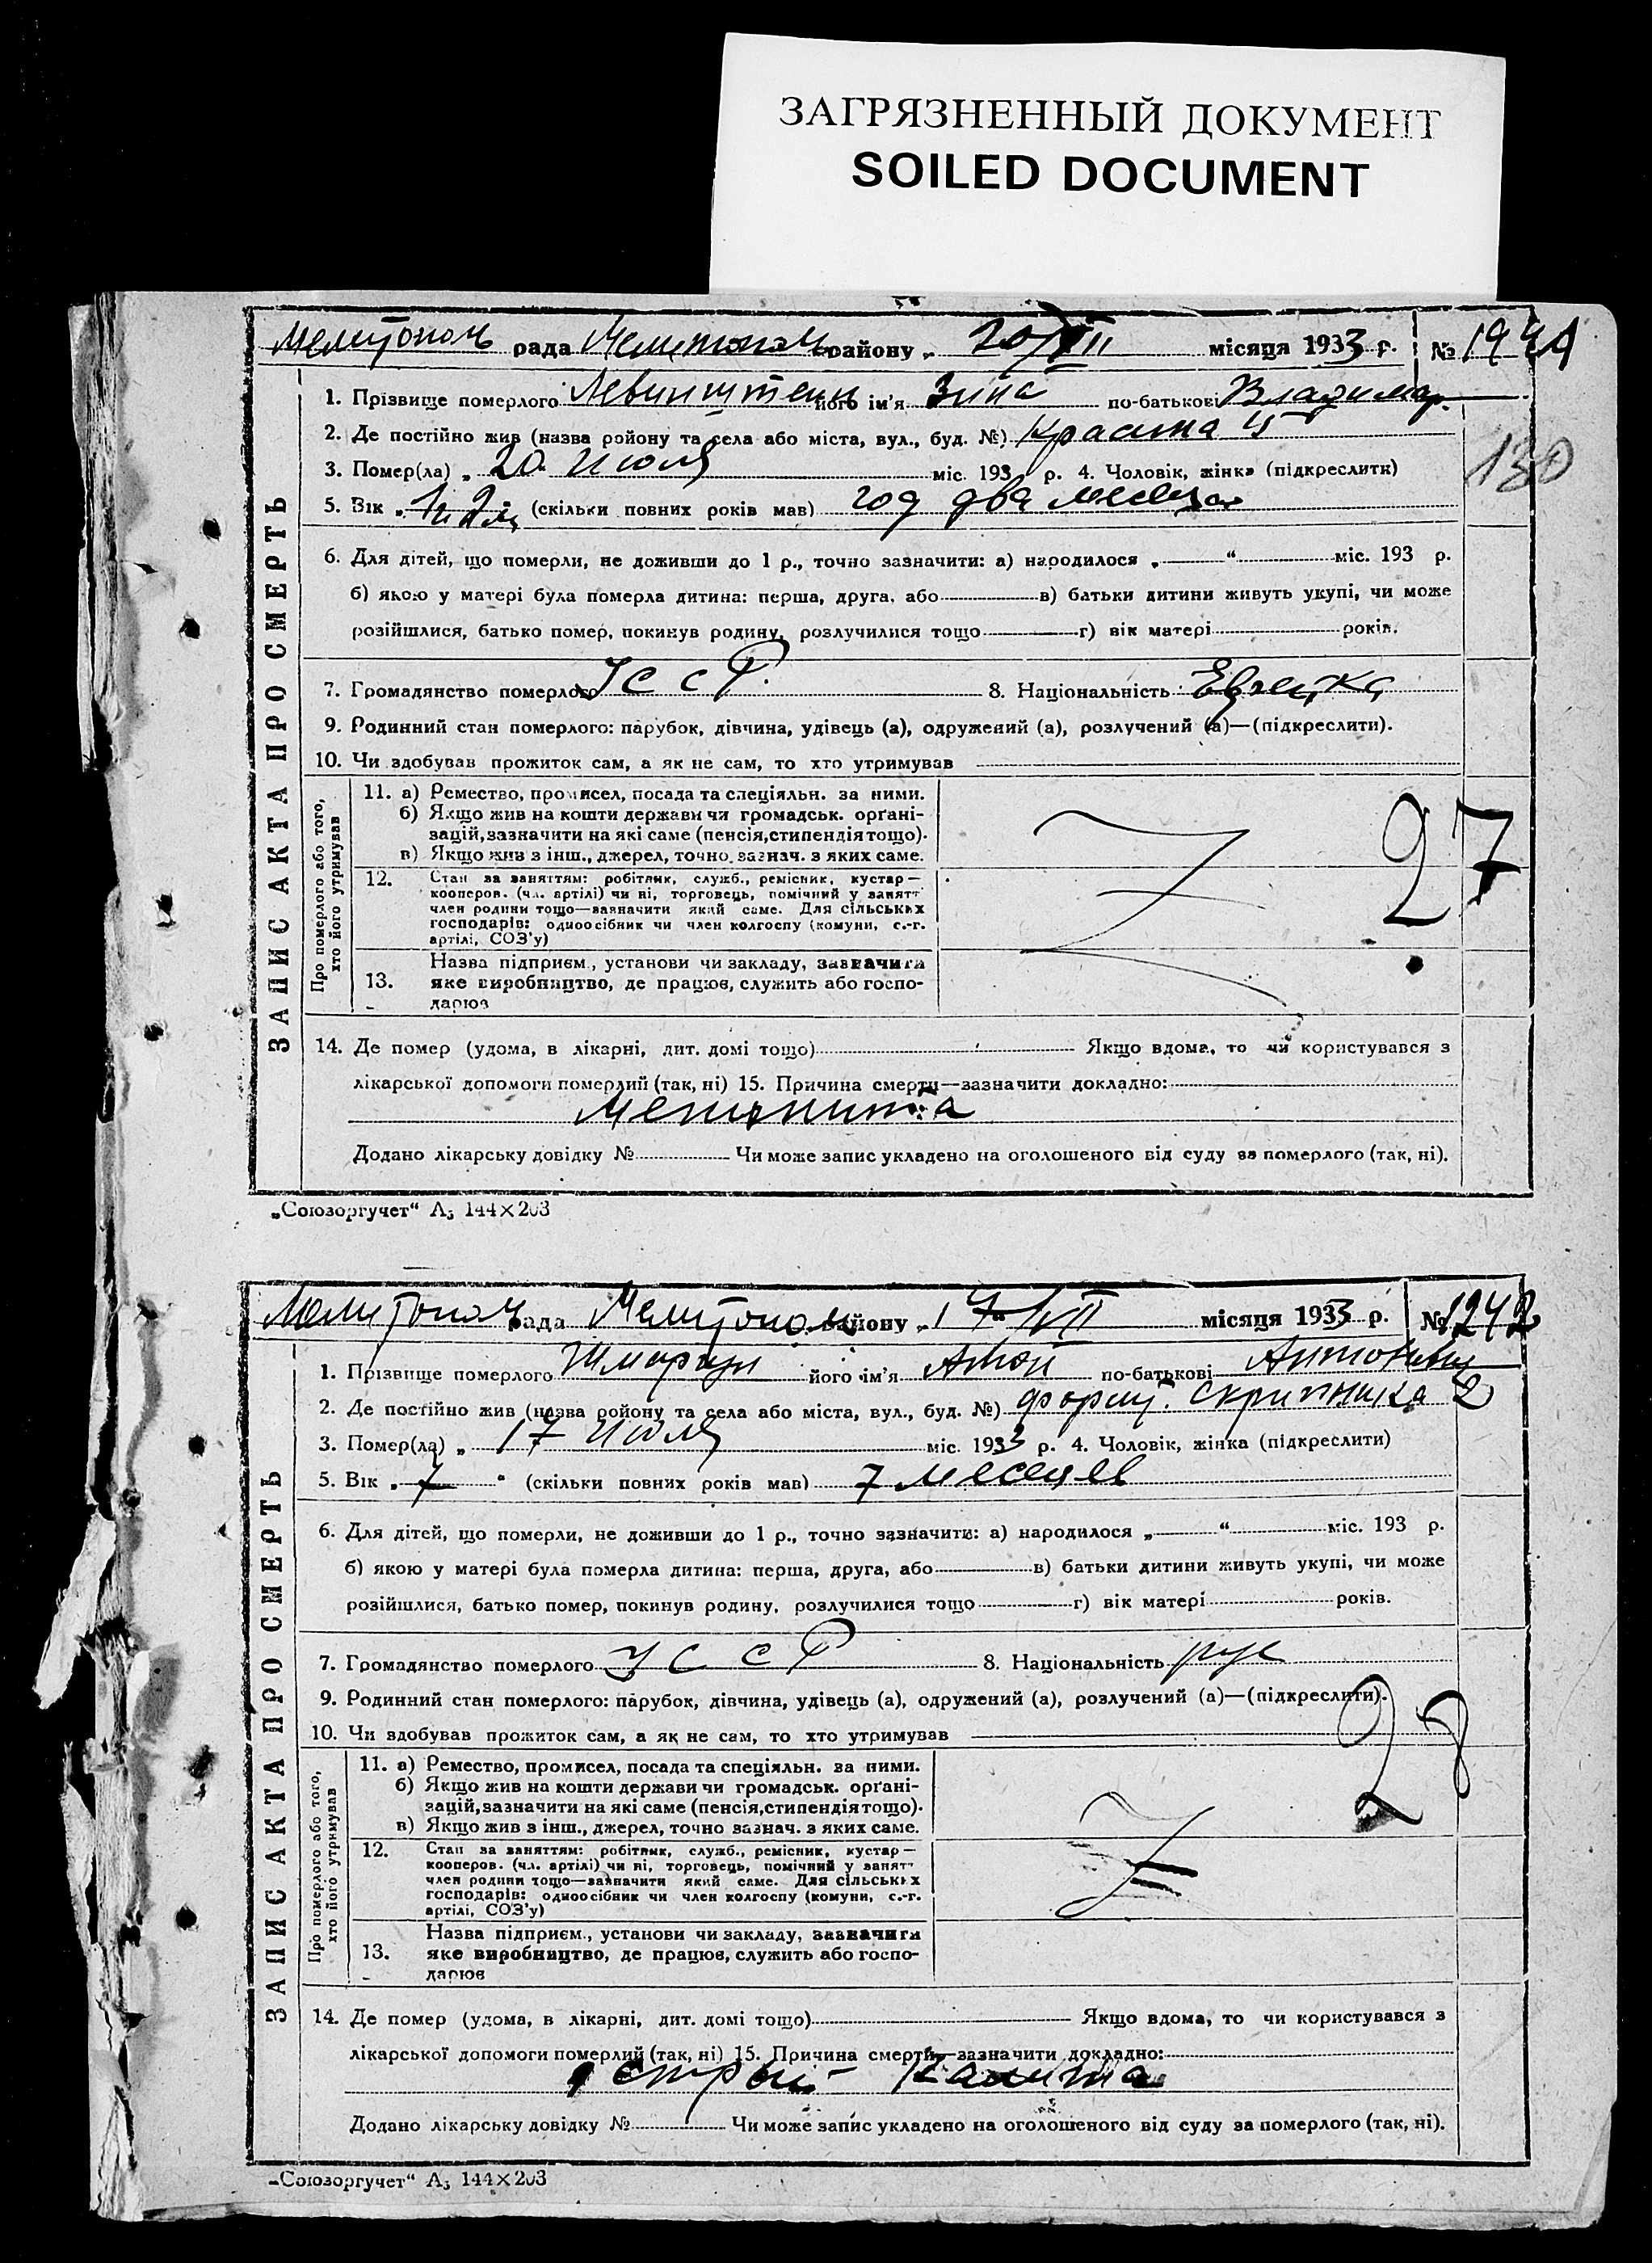 ЗАГРЯЗНЕННЫЙ ДОКУМЕНТ
SOILED DOCUMENT
Мелитополь рада Мелитополь району „ 20/VII місяця 1933 р. № 1941
1. Прізвище померлого Левинштейн його ім'я Зина по-батькові Владимир.
130
2. Де постійно жив (назва району та села або міста, вул., буд. №)
3. Помер(ла) „ 20 июля міс. 193 р. 4. Чоловік, жінка (підкреслити)
5. Вік „ (скільки повних років мав) год два месяца
6. Для дітей, що померли, не доживши до 1 р., точно зазначити: а) народилося „ “ міс. 193 р.
б) якою у матері була померла дитина: перша, друга, або в) батьки дитини живуть укупі, чи може
розійшлися, батько помер, покинув родину, розлучилися тощо г) вік матері років.
7. Громадянство померлого УССР 8. Національність Еврейка
9. Родинний стан померлого: парубок, дівчина, удівець (а), одружений (а), розлучений (а)—(підкреслити).
10. Чи здобував прожиток сам, а як не сам, то хто утримував
ЗАПИС АКТА ПРО СМЕРТЬ
Про померлого або того,
хто його утримував
11. а) Ремество, промисел, посада та спеціяльн. за ними.
б) Якщо жив на кошти держави чи громадськ. орґані-
зацій, зазначити на які саме (пенсія, стипендія тощо).
в) Якщо жив з інш., джерел, точно зазнач. з яких саме.
27
12. Стан за заняттям: робітник, служб., ремісник, кустар—
кооперов. (чл. артілі) чи ні, торговець, помічний у занятт
член родини тощо—зазначити який саме. Для сільських
господарів: одноосібник чи член колгоспу (комуни, с.-г.
артілі, СОЗ'у)
13. Назва підприєм., установи чи закладу, зазначити
яке виробництво, де працюв, служить або госпо-
дарюв
14. Де помер (удома, в лікарні, дит. домі тощо) Якщо вдома, то чи користувався з
лікарської допомоги померлий (так, ні) 15. Причина смерти—зазначити докладно:
Додано лікарську довідку № Чи може запис укладено на оголошеного від суду за померлого (так, ні).
„Союзоргучет“ А5 144×203
Мелитополь рада Мелитополь району „ 17/VII місяця 1933 р. № 1242
1. Прізвище померлого його ім'я по-батькові Антонович
2. Де постійно жив (назва району та села або міста, вул., буд. №) Скрипника 2
3. Помер(ла) „ 17 июля міс. 1933 р. 4. Чоловік, жінка (підкреслити)
5. Вік „ 7 “ (скільки повних років мав) 7 месецев
6. Для дітей, що померли, не доживши до 1 р., точно зазначити: а) народилося „ “ міс. 193 р.
б) якою у матері була померла дитина: перша, друга, або в) батьки дитини живуть укупі, чи може
розійшлися, батько помер, покинув родину, розлучилися тощо г) вік матері років.
7. Громадянство померлого УССР 8. Національність рус
9. Родинний стан померлого: парубок, дівчина, удівець (а), одружений (а), розлучений (а)—(підкреслити).
28
10. Чи здобував прожиток сам, а як не сам, то хто утримував
ЗАПИС АКТА ПРО СМЕРТЬ
Про померлого або того,
хто його утримував
11. а) Ремество, промисел, посада та спеціяльн. за ними.
б) Якщо жив на кошти держави чи громадськ. орґані-
зацій, зазначити на які саме (пенсія, стипендія тощо).
в) Якщо жив з інш., джерел, точно зазнач. з яких саме.
12. Стан за заняттям: робітник, служб., ремісник, кустар—
кооперов. (чл. артілі) чи ні, торговець, помічний у занятт
член родини тощо—зазначити який саме. Для сільських
господарів: одноосібник чи член колгоспу (комуни, с.-г.
артілі, СОЗ'у)
13. Назва підприєм., установи чи закладу, зазначити
яке виробництво, де працюв, служить або госпо-
дарюв
14. Де помер (удома, в лікарні, дит. домі тощо) Якщо вдома, то чи користувався з
лікарської допомоги померлий (так, ні) 15. Причина смерти—зазначити докладно:
острый колита
Додано лікарську довідку № Чи може запис укладено на оголошеного від суду за померлого (так, ні).
„Союзоргучет“ А5 144×203